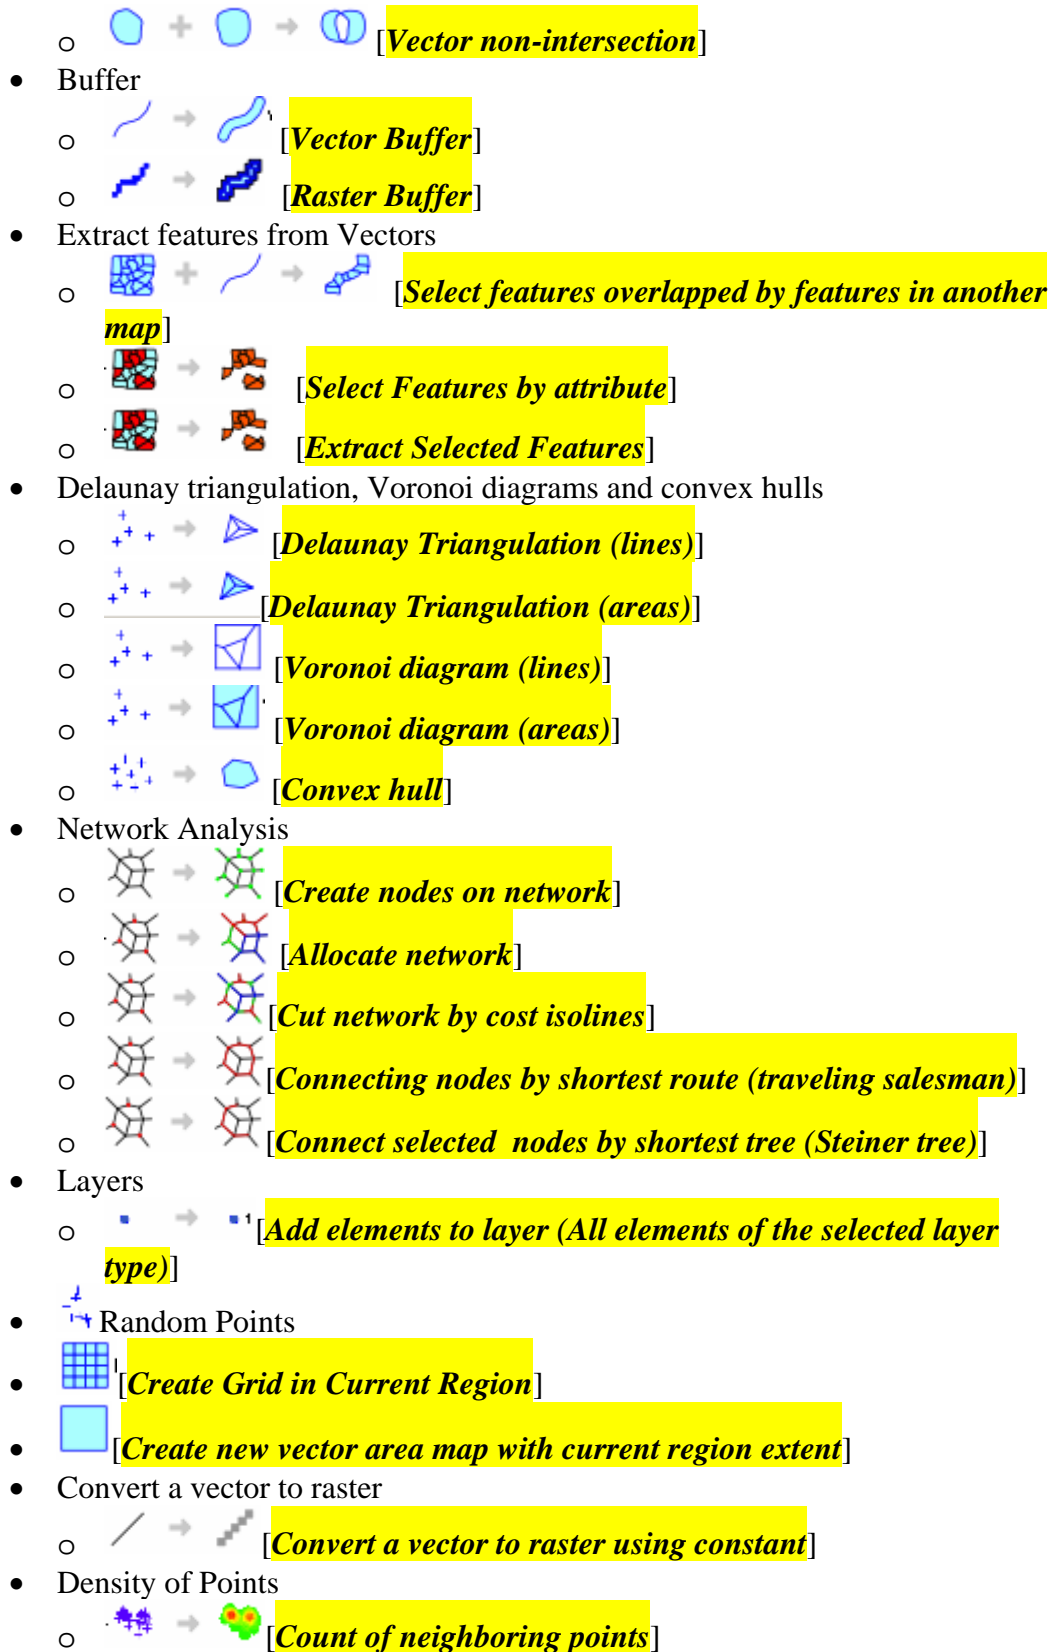 o [Vector non-intersection]
• Buffer
o [Vector Buffer]
o [Raster Buffer]
• Extract features from Vectors
o [Select features overlapped by features in another
map]
o [Select Features by attribute]
o [Extract Selected Features]
• Delaunay triangulation, Voronoi diagrams and convex hulls
o [Delaunay Triangulation (lines)]
o [Delaunay Triangulation (areas)]
o [Voronoi diagram (lines)]
o [Voronoi diagram (areas)]
o [Convex hull]
• Network Analysis
o [Create nodes on network]
o [Allocate network]
o [Cut network by cost isolines]
o [Connecting nodes by shortest route (traveling salesman)]
o [Connect selected  nodes by shortest tree (Steiner tree)]
• Layers
o 1 [Add elements to layer (All elements of the selected layer
type)]
• Random Points
• [Create Grid in Current Region]
• [Create new vector area map with current region extent]
• Convert a vector to raster
o [Convert a vector to raster using constant]
• Density of Points
o [Count of neighboring points]